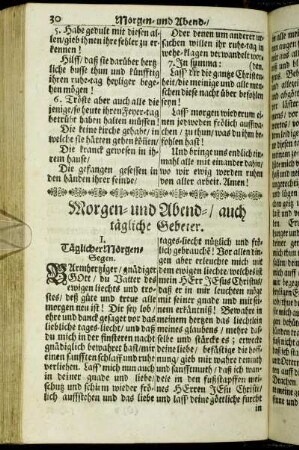 30 Morgen- und Abend-/
5. Habe gedult mit diesen al-
len/gieb ihnen ihre fehler zu er-
kennen!
Hilff/daß sie darüber hertz-
liche busse thun und künfftig
ihren ruh-tag heyliger bege-
hen mögen!
6. Tröste aber auch alle die
jenige/so heute ihren feyer-tag
betrübt haben halten müssen!
Die keine kirche gehabt/in
welche sie hätten gehen können/
Die kranck gewesen in ih-
rem hause/
Die gefangen gesessen in
den händen ihrer feinde/
Oder denen um anderer ur-
sachen willen ihr ruh-tag in
wehe-klagen verwandelt
worden.
7. In summa:
Laß dir die gantze Christen-
heit/die menschen alle und
diesen die nacht über befohlen
seyn!
Laß morgen wiederum ei-
nen jedweden frölich auffwa-
chen/zu thun/was du ihm be-
fohlen hast!
Und bringe uns endlich ein-
mahl alle mit einander dahin/
wo wir ewig werden ruhen
von aller arbeit. Amen!
Morgen- und Abend-/auch
tägliche Gebeter.
I.
Täglicher Morgen-
Segen.
BArmhertziger/gnädiger
GOtt/du Vatter des
ewigen liechtes und tro-
stes/deß güte und treue alle
morgen neu ist! Dir sey lob/
ehr und danck gesagt vor das
liebliche tages-liecht/und daß
du mich in der finsteren nacht
gnädiglich bewahret hast/mir
einen sanfften schlaff und ruhe
verliehen. Laß mich nun auch
in deiner gnade und liebe/
schutz und schirm wieder frö-
lich auffstehen und das lieb
tages-liecht nützlich und frö-
lich gebrauche! Vor allen din-
gen aber erleuchte mich mit
dem ewigen liechte/welches ist
mein HErr JEsus Christus/
daß er in mir leuchte
mit seiner gnade und mit sei-
ner erkäntniß! Bewahre in
meinem hertzen das liechtlein
meines glaubens/mehre das-
selbe und stärcke es; erweck
deine liebe/befästige die hoff-
nung/gieb mir wahre demuth
und sanfftmuth/daß ich wan-
dele in den fußstapffen mei-
nes HErren JEsu Christi/
und laß deine göttliche furcht
in